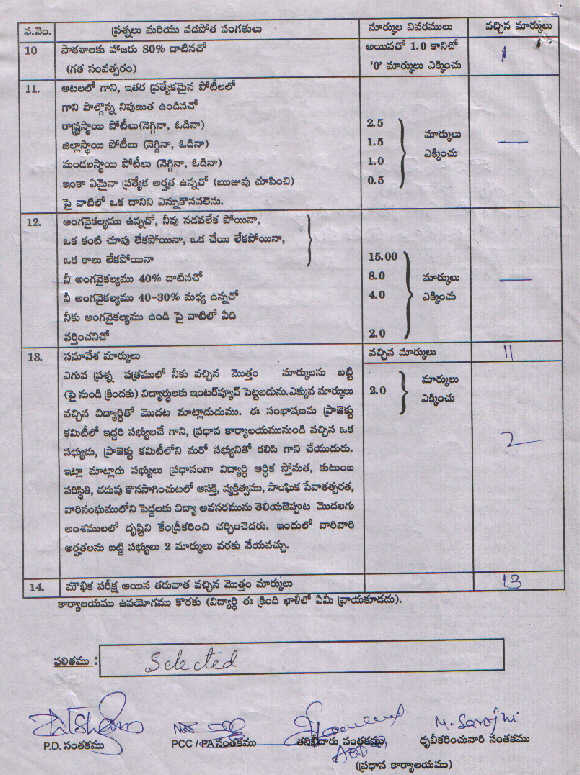 వ.నెం. ప్రశ్నలు మరియు వడపోత వంగతులు మార్కుల వివరములు వచ్చిన మార్కులు
10 పాఠశాలకు హాజరు 80% దాటినచో అయినచో 1.0 కానిచో 1
(గత సంవత్సరం) '0' మార్కులు ఎక్కించు
11. ఆటలలో గాని, ఇతర ప్రత్యేకమైన పోటీలలో
గాని పాల్గొన్న నిపుణత ఉండినచో
రాష్ట్రస్థాయి పోటీలు(నెగ్గినా, ఓడినా) 2.5 మార్కులు
జిల్లాస్థాయి పోటీలు (నెగ్గినా, ఓడినా) 1.5 ఎక్కించు —
మండలస్థాయి పోటీలు (నెగ్గినా, ఓడినా) 1.0
ఇంకా ఏమైనా ప్రత్యేక అర్హత ఉన్నచో (ఋజువు చూపించి) 0.5
పై వాటిలో ఒక దానిని ఎన్నుకొనవలెను.
12. అంగవైకల్యము ఉన్నచో, నీవు నడవలేక పోయినా,
ఒక కంటి చూపు లేకపోయినా, ఒక చేయి లేకపోయినా,
ఒక కాలు లేకపోయినా 15.00
నీ అంగవైకల్యము 40% దాటినచో 8.0 మార్కులు —
నీ అంగవైకల్యము 40-30% మధ్య ఉన్నచో 4.0 ఎక్కించు
నీకు అంగవైకల్యము ఉండి పై వాటిలో ఏది
వర్తించనిచో 2.0
13. సమావేశ మార్కులు వచ్చిన మార్కులు 11
ఎగువ ప్రశ్న పత్రములో నీకు వచ్చిన మొత్తం మార్కులను బట్టి మార్కులు
(పై నుండి క్రిందకు) విద్యార్థులకు ఇంటర్వ్యూన్ పెట్టబడును.ఎక్కువ మార్కులు 2.0 ఎక్కించు
వచ్చిన విద్యార్థితో మొదట మాట్లాడుదుము. ఈ సంభాషణను ప్రాజెక్టు
కమిటీలో ఇద్దరి సభ్యులచే గాని, ప్రధాన కార్యాలయమునుండి వచ్చిన ఒక
సభ్యుడు, ప్రాజెక్టు కమిటీలోని మరో సభ్యునితో కలిసి గాని చేయుదురు. 2
ఇట్లా మాట్లాడు సభ్యులు ప్రధానంగా విద్యార్థి ఆర్థిక స్తోమత, కుటుంబ
పరిస్థితి, చదువు కొనసాగించుటలో ఆసక్తి, వ్యక్తిత్వము, సాంఘిక సేవాతత్పరత,
వారిసంఘములోని పెద్దలకు విద్యా అవసరమును తెలియజెప్పుట మొదలగు
అంశములలో దృష్టిని కేంద్రీకరించి చర్చించెదరు. ఇందులో వారివారి
అర్హతలను బట్టి సభ్యులు 2 మార్కులు వరకు వేయవచ్చు.
14. మౌఖిక పరీక్ష అయిన తరువాత వచ్చిన మొత్తం మార్కులు 13
కార్యాలయము ఉపయోగము కొరకు (విద్యార్థి ఈ క్రింది ఖాళీలో ఏమీ వ్రాయకూడదు).
ఫలితము : Selected
M. Sarojni
P.D. సంతకము PCC / PA సంతకము తనిఖీదారు సంతకము ధృవీకరించువారి సంతకము
(ప్రధాన కార్యాలయము)